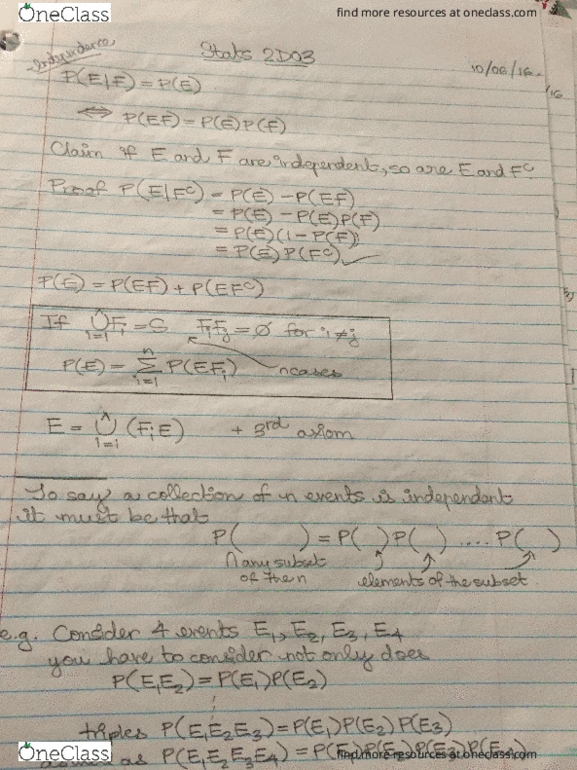 OneClass
find more resources at oneclass.com
Independence
Stats 2D03
10/06/16.
P(E|F) = P(E)
⟺ P(EF) = P(E)P(F)
Claim if E and F are independent, so are E and Fᶜ
Proof P(E|Fᶜ) = P(E) - P(EF)
= P(E) - P(E)P(F)
= P(E)(1 - P(F))
= P(E)P(Fᶜ) ✓
P(E) = P(EF) + P(EFᶜ)
If ⋃ᵢ₌₁ Fᵢ = S FᵢFⱼ = ∅ for i≠j
P(E) = Σᵢ₌₁ⁿ P(EFᵢ) n cases
E = ⋃ᵢ₌ᵢⁿ (FᵢE) + 3rd axiom
To say a collection of n events is independent
it must be that
P( ) = P( )P( ) .... P( )
∩ any subset
of the n
elements of the subset
e.g. Consider 4 events E₁, E₂, E₃, E₄
you have to consider not only does
P(E₁E₂) = P(E₁)P(E₂)
triples P(E₁E₂E₃) = P(E₁)P(E₂)P(E₃)
as P(E₁E₂E₃E₄) = P(E₁)P(E₂)P(E₃)P(E₄)
OneClass
find more resources at oneclass.com